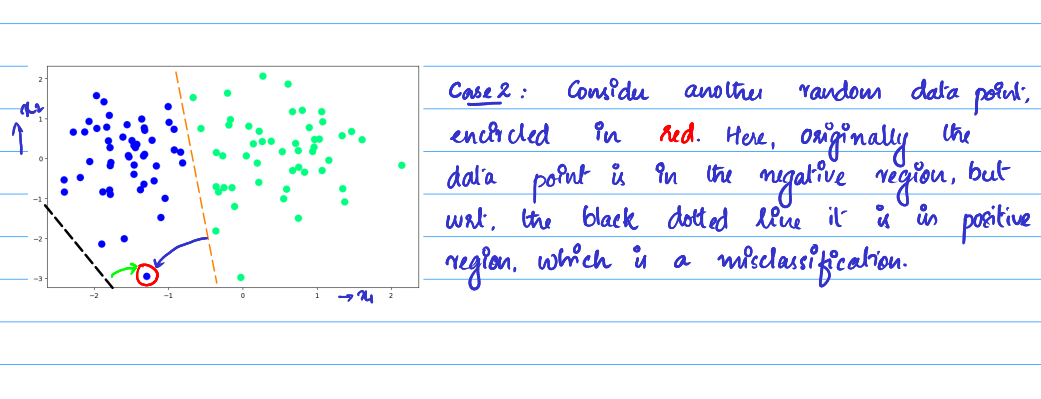 Case 2 : Consider another random data point,
encircled in red. Here, originally the
data point is in the negative region, but
wrt. the black dotted line it is in positive
region, which is a misclassification.
x2
2
1
0
−1
−2
−3
−2 −1 0 1 2
→ x1